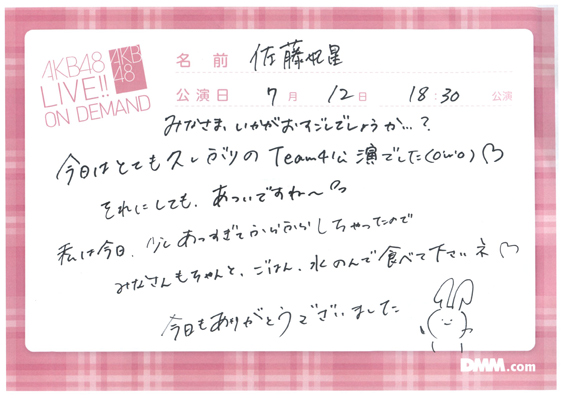 AKB48
LIVE!!
ON DEMAND
AKB
48
名前 佐藤妃星
公演日 7月 12日 18:30 公演
みなさま、いかがおすごしでしょうか…?
今日はとても久しぶりの Team4公演でした(o'ω'o)♡
それにしても、あついですね〜
私は今日、少しあつすぎてからからしちゃったので
みなさんもちゃんと、ごはん、水のんで食べて下さいネ♡
今日もありがとうございました
DMM.com